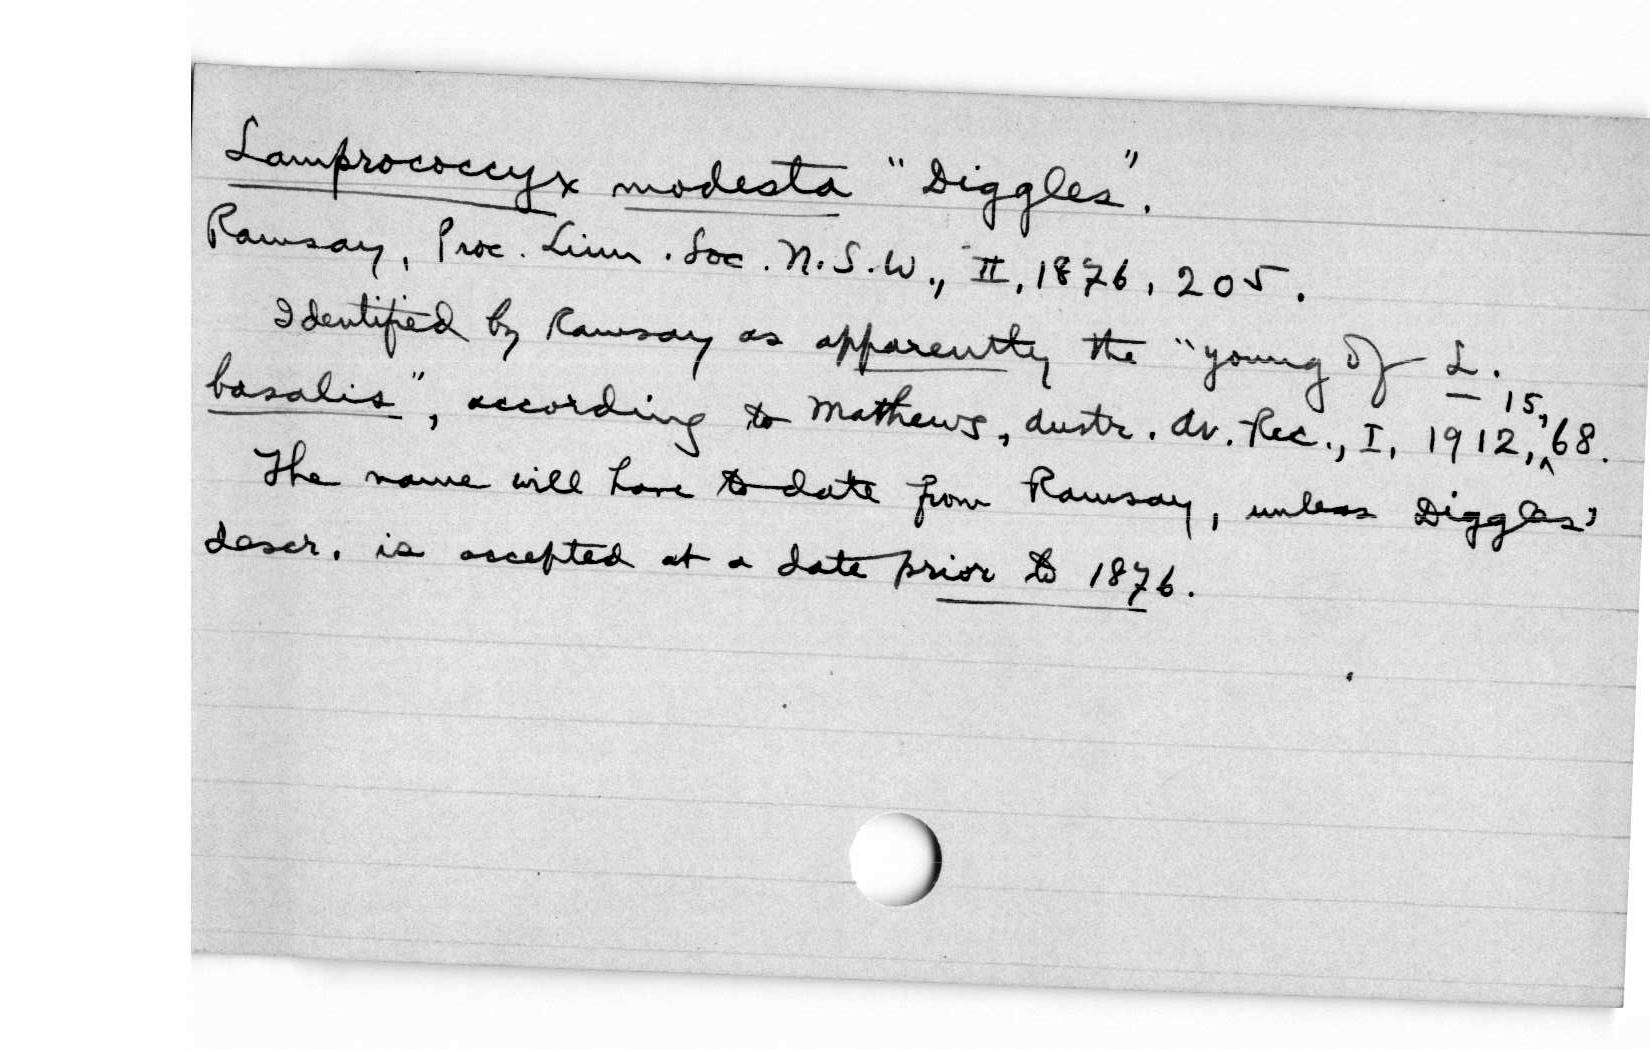 Lamprococcyx modesta "Diggles".
Ramsay, Proc. Linn. Soc. N.S.W., II, 1876, 205.
Identified by Ramsay as apparently the "young of L.
basalis", according to Mathews, Austr. Av. Rec., I, 1912, 15, 68.
The name will have to date from Ramsay, unless Diggles'
descr. is accepted at a date prior to 1876.